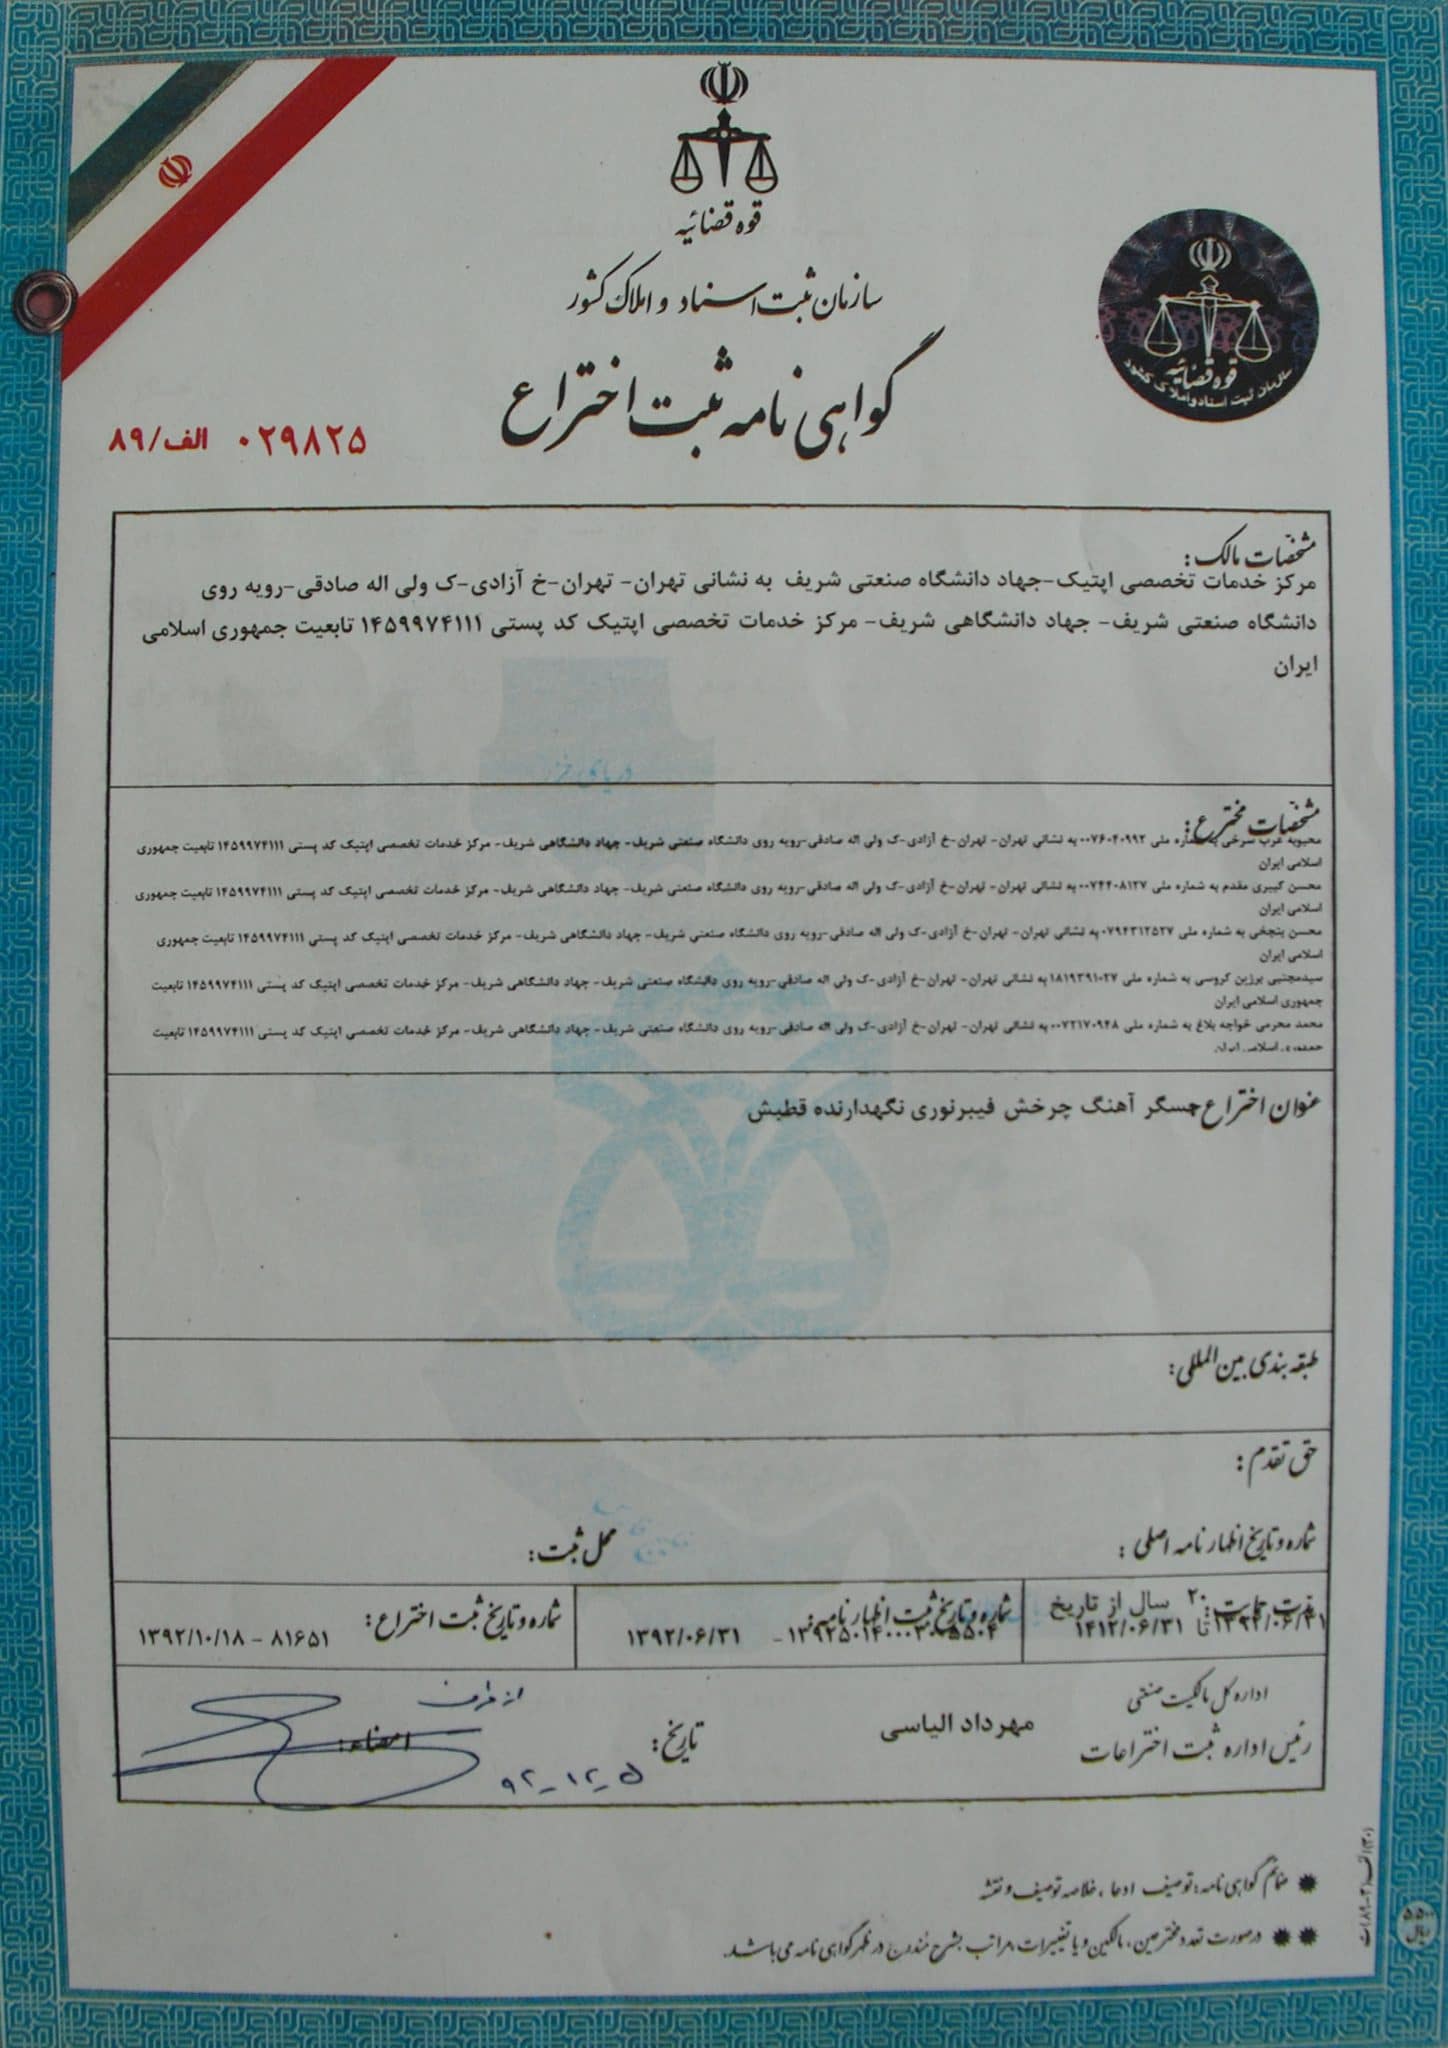 قوه قضائیه
سازمان ثبت اسناد و املاک کشور
گواهی نامه ثبت اختراع
قوه قضائیه
سازمان ثبت اسناد و املاک کشور
الف/۸۹ ۰۲۹۸۲۵
مشخصات مالک:
مرکز خدمات تخصصی اپتیک-جهاد دانشگاه صنعتی شریف به نشانی تهران- تهران-خ آزادی-ک ولی اله صادقی-روبه روی
دانشگاه صنعتی شریف- جهاد دانشگاهی شریف- مرکز خدمات تخصصی اپتیک کد پستی ۱۴۵۹۹۷۴۱۱۱ تابعیت جمهوری اسلامی
ایران
مشخصات مخترع:
محبوبه عرب سرخی به شماره ملی ۰۰۷۶۰۴۰۹۹۲ به نشانی تهران- تهران-خ آزادی-ک ولی اله صادقی-روبه روی دانشگاه صنعتی شریف- جهاد دانشگاهی شریف- مرکز خدمات تخصصی اپتیک کد پستی ۱۴۵۹۹۷۴۱۱۱ تابعیت جمهوری
اسلامی ایران
محسن کبیری مقدم به شماره ملی ۰۰۷۴۴۰۸۱۲۷ به نشانی تهران- تهران-خ آزادی-ک ولی اله صادقی-روبه روی دانشگاه صنعتی شریف- جهاد دانشگاهی شریف- مرکز خدمات تخصصی اپتیک کد پستی ۱۴۵۹۹۷۴۱۱۱ تابعیت جمهوری
اسلامی ایران
محسن پنجخی به شماره ملی ۰۷۹۴۳۱۲۵۲۷ به نشانی تهران- تهران-خ آزادی-ک ولی اله صادقی-روبه روی دانشگاه صنعتی شریف- جهاد دانشگاهی شریف- مرکز خدمات تخصصی اپتیک کد پستی ۱۴۵۹۹۷۴۱۱۱ تابعیت جمهوری
اسلامی ایران
سیدمجتبی برزین کروسی به شماره ملی ۱۸۱۹۳۹۱۰۲۷ به نشانی تهران- تهران-خ آزادی-ک ولی اله صادقی-روبه روی دانشگاه صنعتی شریف- جهاد دانشگاهی شریف- مرکز خدمات تخصصی اپتیک کد پستی ۱۴۵۹۹۷۴۱۱۱ تابعیت
جمهوری اسلامی ایران
محمد محرمی خواجه بلاغ به شماره ملی ۰۰۷۲۱۷۰۹۴۸ به نشانی تهران- تهران-خ آزادی-ک ولی اله صادقی-روبه روی دانشگاه صنعتی شریف- جهاد دانشگاهی شریف- مرکز خدمات تخصصی اپتیک کد پستی ۱۴۵۹۹۷۴۱۱۱ تابعیت
جمهوری اسلامی ایران
عنوان اختراع: حسگر آهنگ چرخش فیبرنوری نگهدارنده قطبش
طبقه بندی بین المللی:
حق تقدم:
شماره و تاریخ اظهارنامه اصلی: محل ثبت:
مدت حمایت: ۲۰ سال از تاریخ
۱۳۹۲/۰۶/۳۱ تا ۱۴۱۲/۰۶/۳۱
شماره و تاریخ ثبت اظهارنامه:
۱۳۹۲۵۰۱۴۰۰۰۳۰۵۵۰۴ - ۱۳۹۲/۰۶/۳۱
شماره و تاریخ ثبت اختراع:
۸۱۶۵۱ - ۱۳۹۲/۱۰/۱۸
اداره کل مالکیت صنعتی
رئیس اداره ثبت اختراعات
مهرداد الیاسی
تاریخ: ۹۲-۱۲-۵
از طرف
امضاء:
ضمائم گواهی نامه: توصیف ادعا، خلاصه توصیف و نقشه
درصورت تعدد مخترعین، مالکین و یا تغییرات، مراتب بشرح مندرج در ظهر گواهی نامه می باشد.
۵۵۰۰ ریال